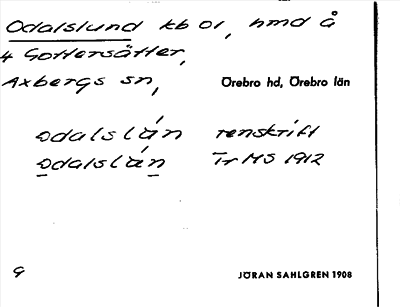 Odalslund kb 01, hmd å
4 Gottersätter,
Axbergs sn, Örebro hd, Örebro län
odalslán renskrift
odalslán Tr MS 1912
9 JÖRAN SAHLGREN 1908